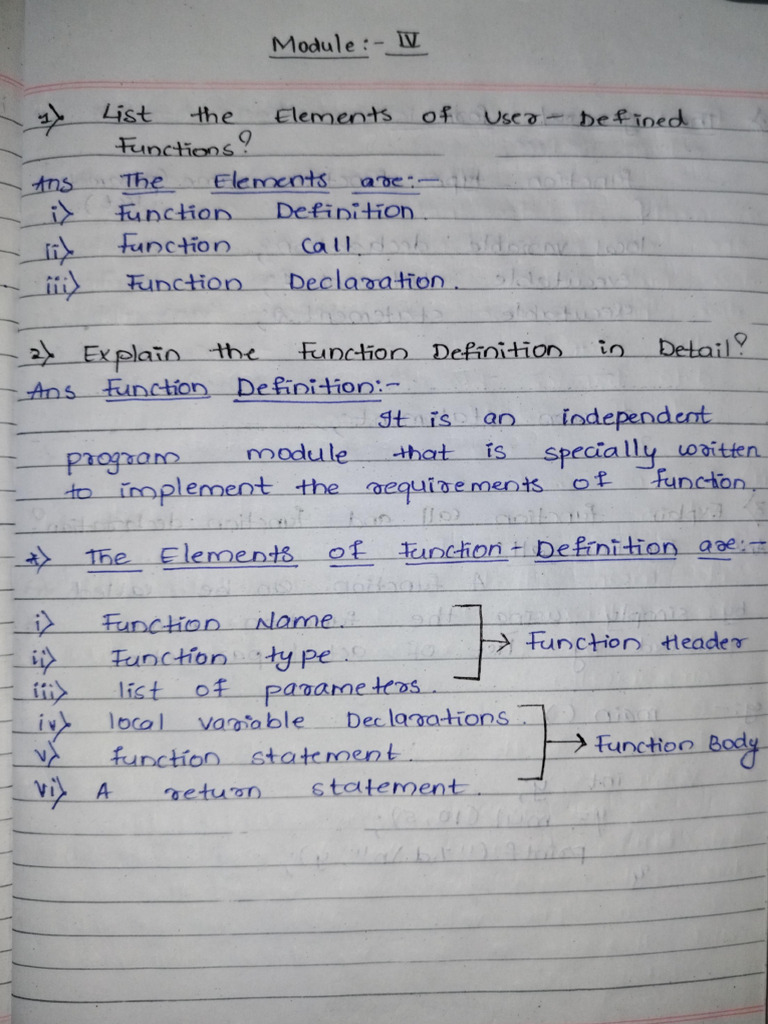 Module:- IV
1) List the Elements of User-Defined
Functions?
Ans The Elements are:-
i) Function Definition.
ii) function call.
iii) Function Declaration.
2) Explain the Function Definition in Detail?
Ans Function Definition:-
It is an independent
program module that is specially written
to implement the requirements of function.
*) The Elements of Function-Definition are:-
i) Function Name.
ii) Function type. → Function Header
iii) list of parameters.
iv) local variable Declarations.
v) function statement. → Function Body
vi) A return statement.